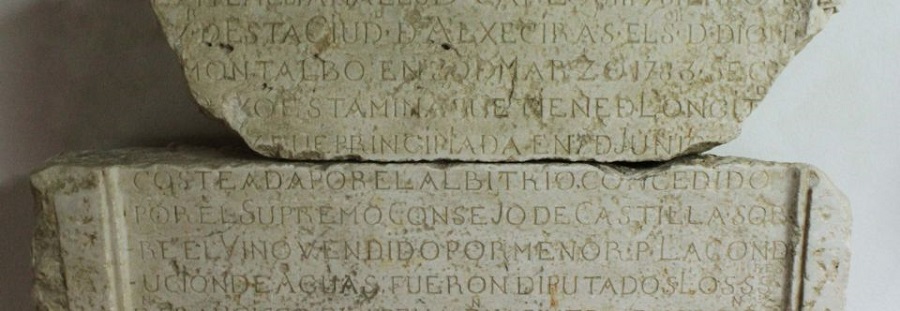 Z DESTA CIUD. D ALXECIRAS. ELS. D. DION
MONTALBO, EN 30 D MARZO 1783. SE CO
ESTA MINA QUE TIENE D LONGIT
FUE PRINCIPIADA EN 7 D JUNI
COSTEADA POR EL ALBITRIO. CONCEDIDO
POR EL SUPREMO CONSEJO DE CASTILLA. SOB
RE EL VINO VENDIDO POR MENOR. P. LA COND
UCION DE AGUAS. FUERON DIPUTADOS LOS S.S